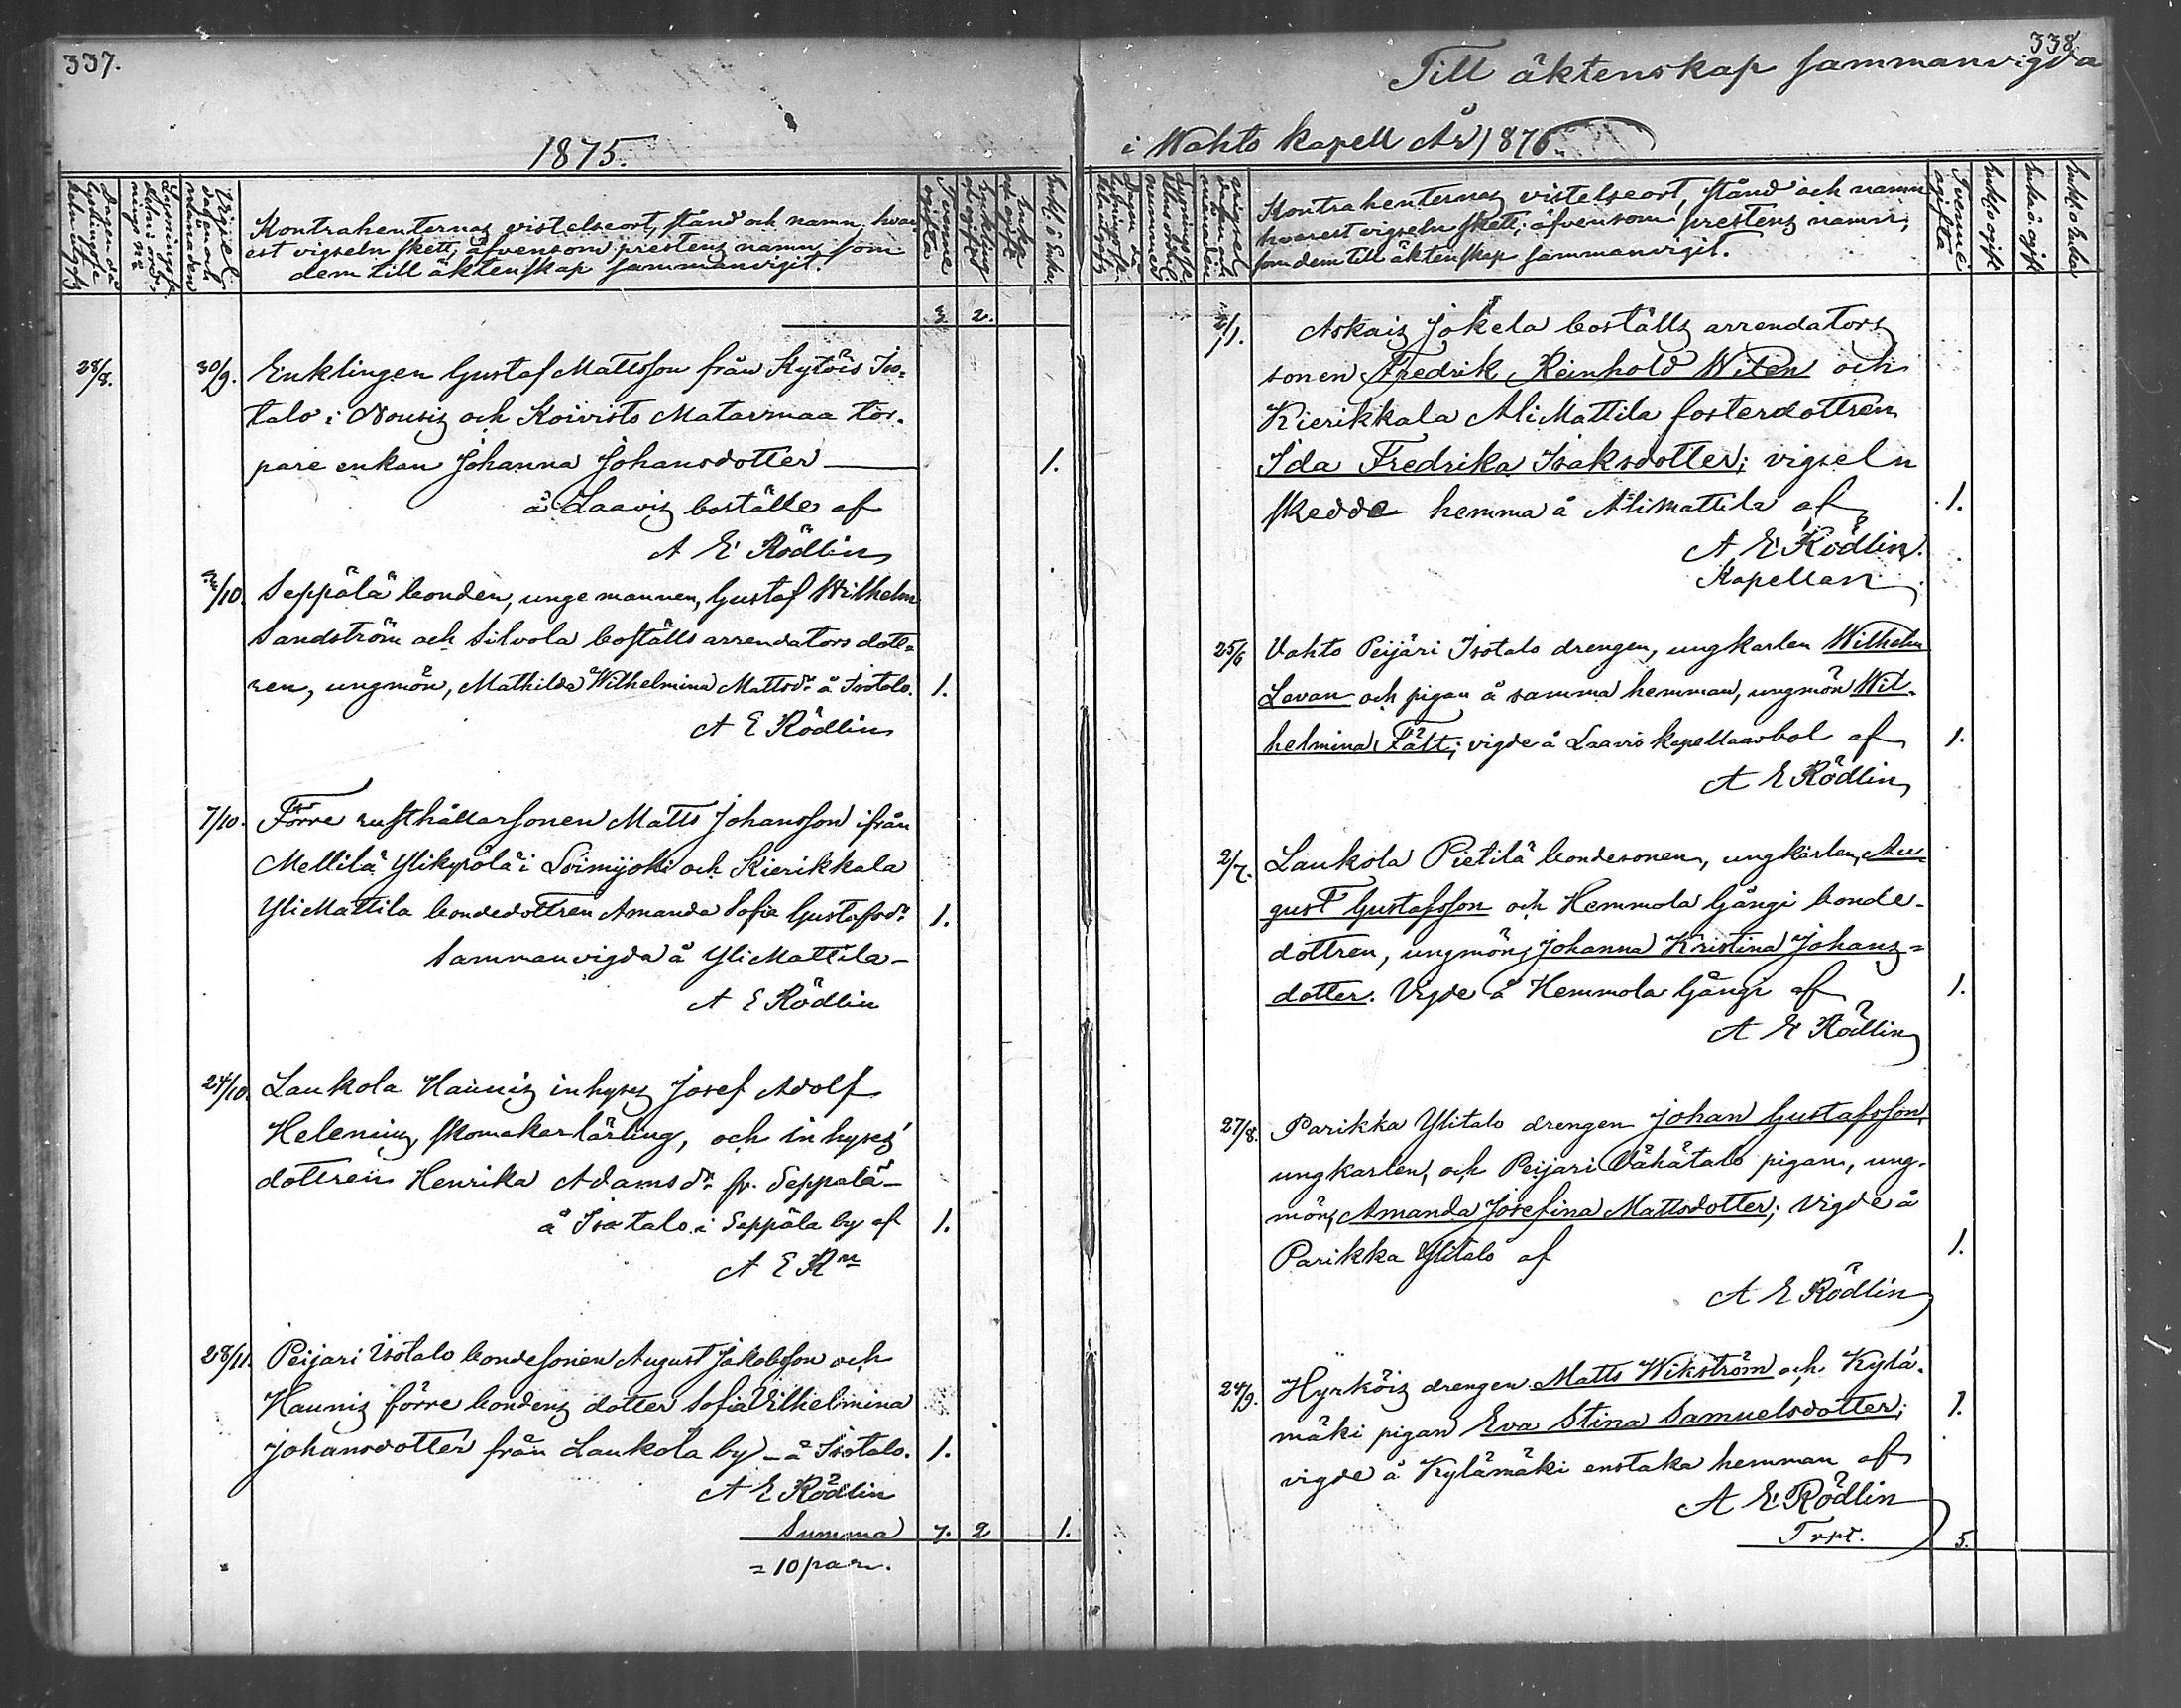 337.
1875.
Vigsel
dagen och
månaden
Kontrahenternas vistelseort, stånd och namn, hvar-
est vigseln skett; äfvensom prestens namn, som
dem till äktenskap sammanvigit.
3. 2.
28/8. 30/9. Enklingen Gustaf Mattsson från Kytöis Iso-
talo i Nousis och Koivisto Matarmaa tor-
pare enkan Johanna Johansdotter 1.
å Laavis boställe af
A E Rödlin
/10. Seppälä bonden, unge mannen, Gustaf Wilhelm
Sandström och Silvola boställs arrendators dott-
ren, ungmön, Mathilda Wilhelmina Mattsdr å Isotalo. 1.
A E Rödlin
7/10. Förre rusthållarsonen Matts Johansson ifrån
Mellilä Ylikypölä i Loimijoki och Kierikkala
YliMattila bondedottren Amanda Sofia Gustafsdr 1.
Sammanvigda å YliMattila-
A E Rödlin
24/10. Laukola Haunis inhyses Josef Adolf
Helenius, skomakarlärling, och inhyses
dottren Henrika Adamsdr fr. Seppälä-
å Isotalo i Seppäla by af 1.
A E Rn
28/11. Peijari Isotalo bondesonen August Jakobsson och
Haunis förre bondens dotter Sofia Vilhelmina
Johansdotter från Laukola by - å Isotalo. 1.
A E Rödlin
Summa 7. 2 1.
= 10 par.
338.
Till äktenskap sammanvigda
i Wahto kapell År 1876
Vigsel
dagen och
månaden
Kontrahenternas vistelseort, stånd och namn
hvarest vigseln skett; äfvensom prestens namn,
som dem till äktenskap sammanvigit.
Tvenne
ogifta
2/1. Askais Jokela boställs arrendators
sonen Fredrik Reinhold Witen och
Kierikkala AliMattila fosterdottren
Ida Fredrika Isaksdotter; vigseln
skedde hemma å AliMattila af 1.
A E Rödlin.
Kapellan
25/6 Vahto Peijäri Isotalo drengen, ungkarlen Wilhelm
Levan och pigan å samma hemman, ungmön Wil-
helmina Fält; vigde å Laavis kapellansbol af 1.
A E Rödlin
2/7. Laukola Pietilä bondesonen, ungkarlen, Au-
gust Gustafsson och Hemmola Gångi bonde-
dottren, ungmön, Johanna Kristina Johans=
dotter. Vigde å Hemmola Gångi af 1.
A E Rödlin
27/8. Parikka Ylitalo drengen Johan Gustafsson,
ungkarlen, och Peijari Vähätalo pigan, ung-
mön, Amanda Josefina Mattsdotter; Vigde å
Parikka Ylitalo af 1.
A E Rödlin
24/9. Hyrköis drengen Matts Wikström och Kylä-
mäki pigan Eva Stina Samuelsdotter; 1.
vigde å Kylämäki enstaka hemman af
A E Rödlin
Trpt. 5.